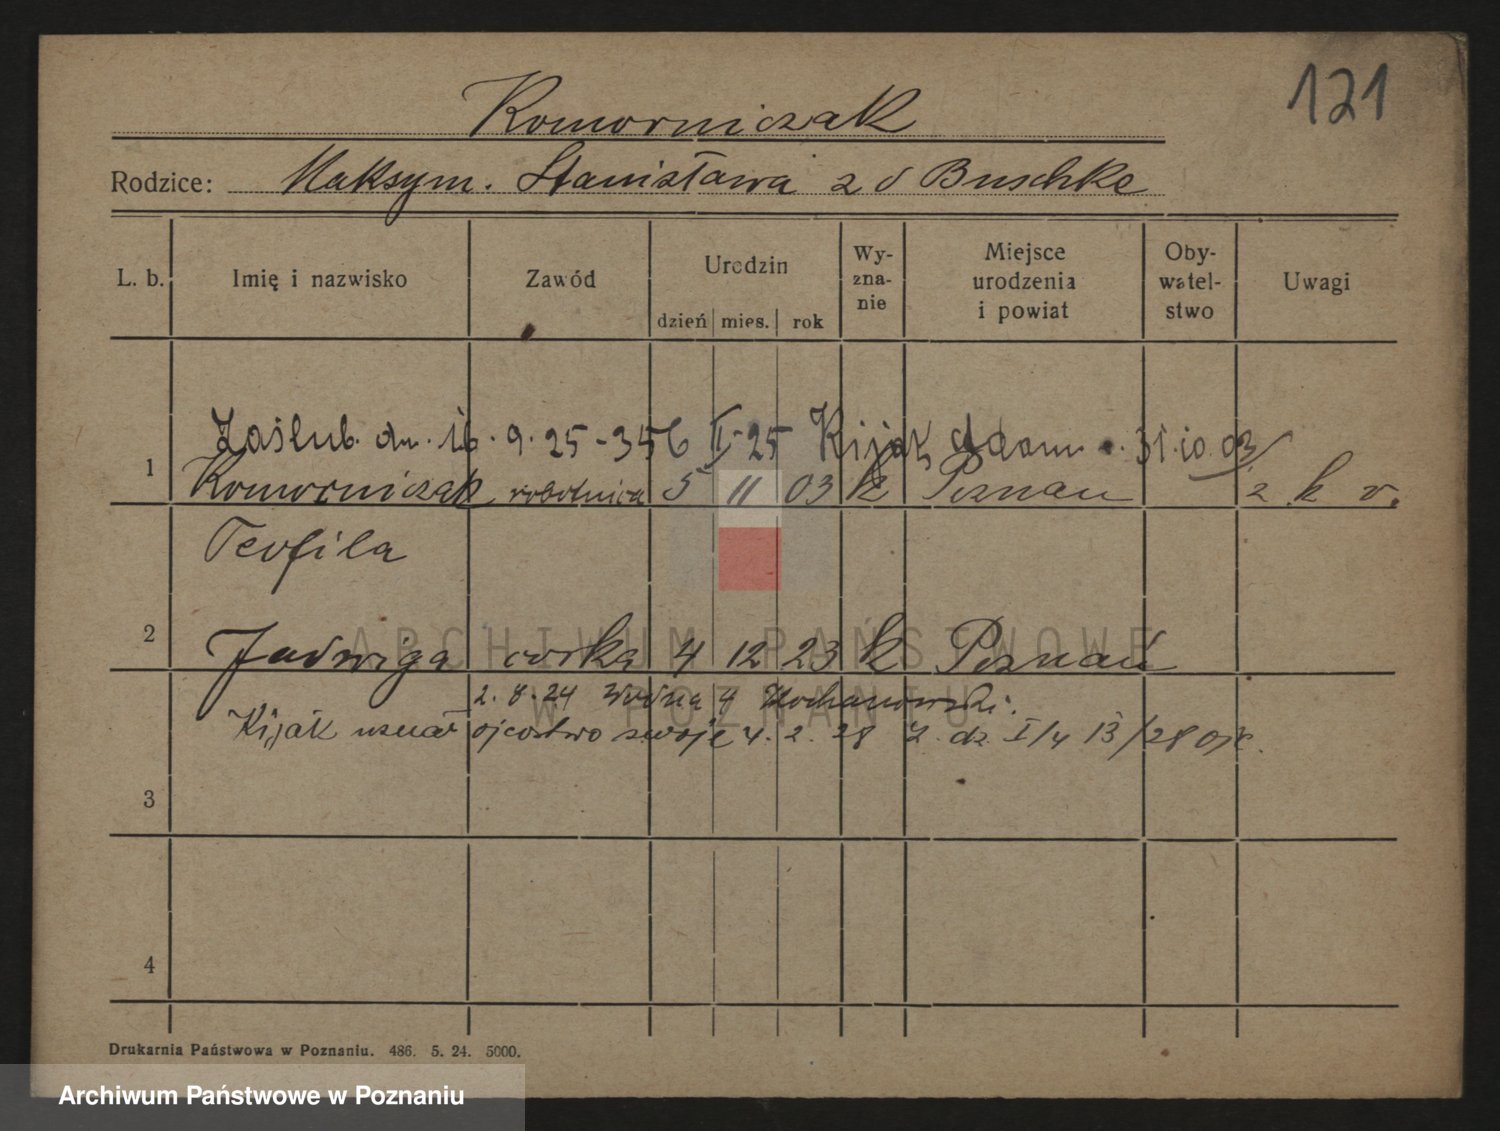 121
Komorniczak
Rodzice: Maksym. Stanisława z d Buschke
L. b. Imię i nazwisko Zawód Urodzin dzień mies. rok Wy-zna-nie Miejsce urodzenia i powiat Oby-watel-stwo Uwagi
Zaślub. dn. 16. 9. 25 - 356 II - 25 Kijak Adam 31.10.03
1 Komorniczak robotnica 5 11 03 k Poznań z k v.
Teofila
2 Jadwiga córka 4 12 23 k Poznań
2. 8. 24 Wodna 4 Kochanowski.
Kijak uznał ojcostwo swoje 4. 2. 28 dz. I/4 13/28
3
4
Drukarnia Państwowa w Poznaniu. 486. 5. 24. 5000.
ARCHIWUM PAŃSTWOWE
W POZNANIU
Archiwum Państwowe w Poznaniu